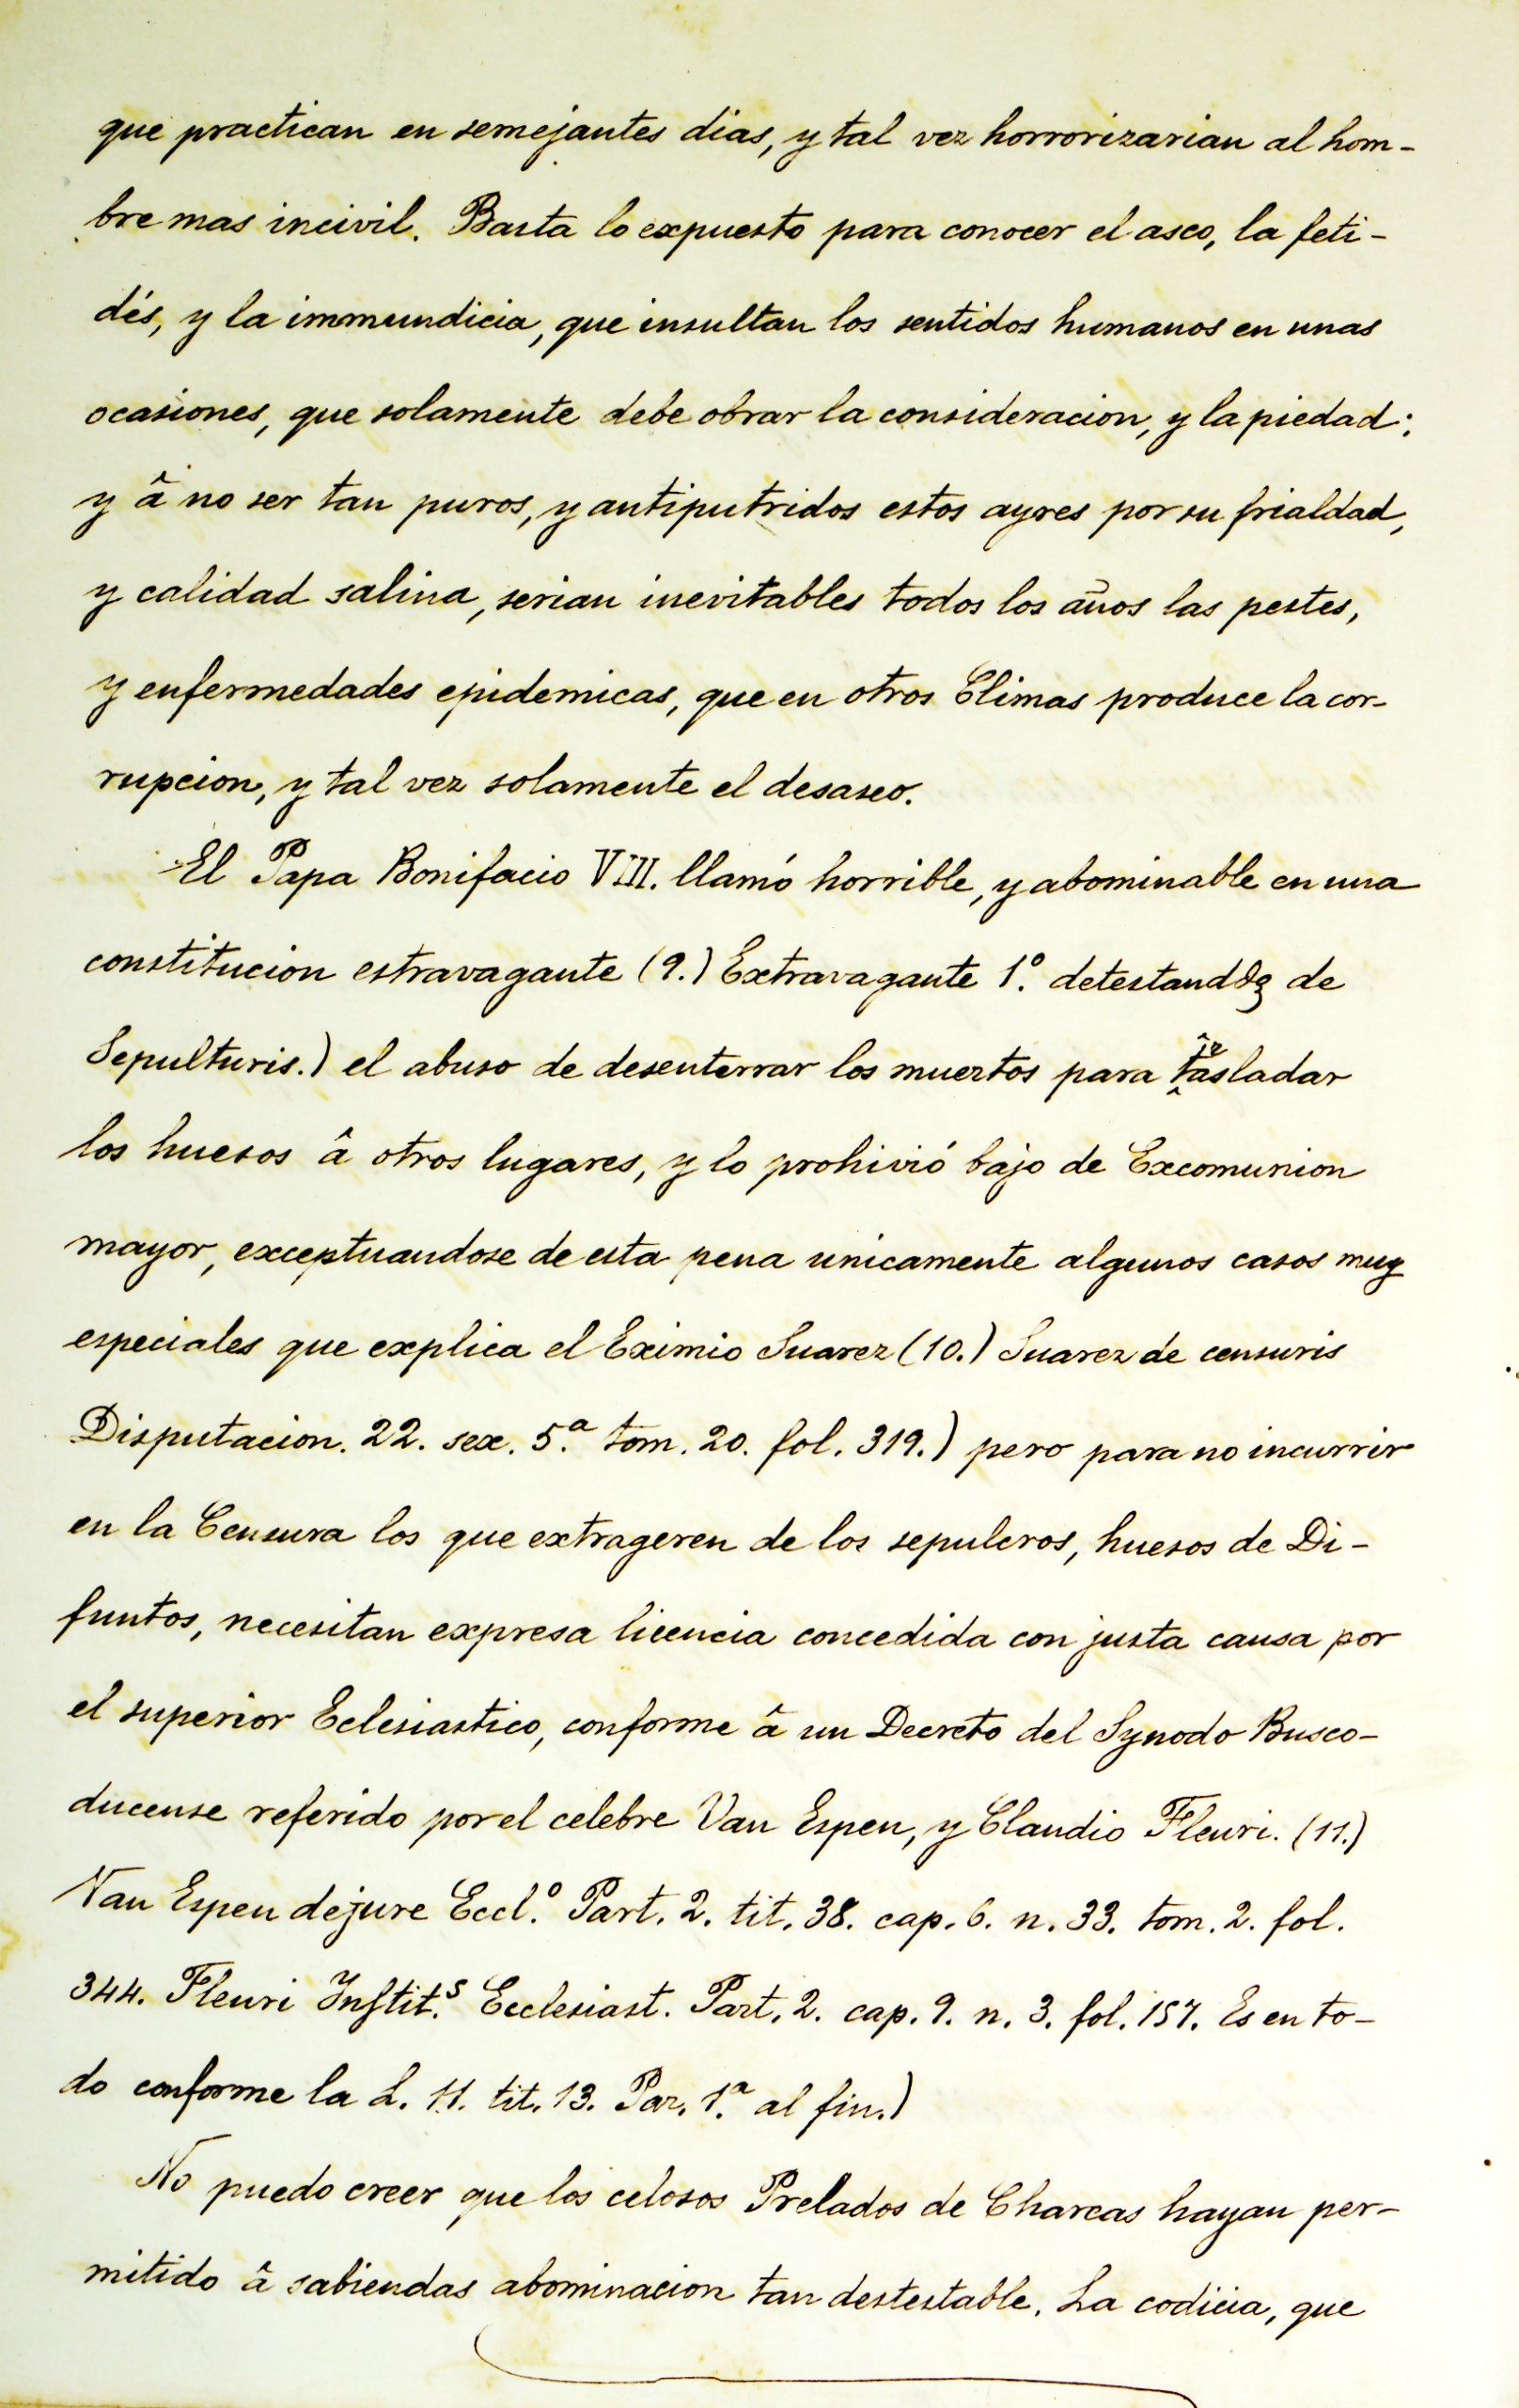 que practican en semejantes dias, y tal vez horrorizarian al hom-
bre mas incivil. Basta lo expuesto para conocer el asco, la feti-
dés, y la immundicia, que insultan los sentidos humanos en unas
ocasiones, que solamente debe obrar la consideracion, y la piedad:
y â no ser tan puros, y antiputridos estos ayres por su frialdad,
y calidad salina, serian inevitables todos los años las pestes,
y enfermedades epidemicas, que en otros Climas produce la cor-
rupcion, y tal vez solamente el desaseo.
El Papa Bonifacio VIII. llamó horrible, y abominable en una
constitucion estravagante (9.) Extravagante 1.º de
Sepulturis.) el abuso de desenterrar los muertos para trasladar
los huesos â otros lugares, y lo prohivió bajo de Excomunion
mayor, exceptuandose de esta pena unicamente algunos casos muy
especiales que explica el Eximio Suarez (10.) Suarez de censuris
Disputacion. 22. sex. 5.ª tom. 20. fol. 319.) pero para no incurrir
en la Censura los que extrageren de los sepulcros, huesos de Di-
funtos, necesitan expresa licencia concedida con justa causa por
el superior Eclesiastico, conforme â un Decreto del Synodo Busco-
ducense referido por el celebre Van Espen, y Claudio Fleuri. (11.)
Van Espen de jure Eccl.º Part. 2. tit. 38. cap. 6. n. 33. tom. 2. fol.
344. Fleuri Instit.s Ecclesiast. Part. 2. cap. 9. n. 3. fol. 157. Es en to-
do conforme la L. 11. tit. 13. Par. 1.ª al fin.)
No puedo creer que los celosos Prelados de Charcas hayan per-
mitido â sabiendas abominacion tan destestable. La codicia, que